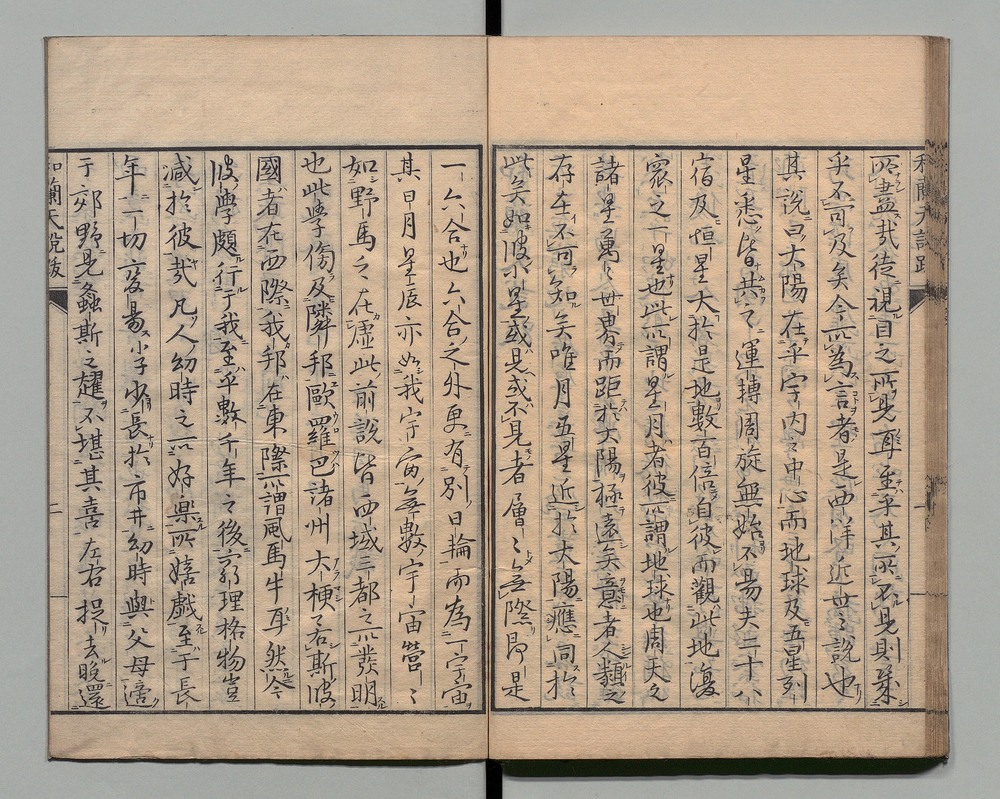 和蘭天説跋
所盡哉徒視目之所見耳至乎其所不見則業
乎不可及矣今所為言者是西洋近世之説也
其説曰大陽在乎宇内之中心而地球及五星列
星悉皆共ニ運轉周旋無始不易夫二十八
宿及恒星大於是地數百倍自彼而觀此地復
衆之一星也此所謂星月者彼所謂地球也周天之
諸星萬々世界而距於大陽極遠矣意者人類之
存在不可知矣唯月五星近於大陽應同於
此矣如彼小星或見或不見者層々無際即是
一六合也六合之外更有別日輪而為一宇宙
其日月星辰亦如我宇宙無數宇宙營々
如野馬之在虚此前説皆西域三都之所發明
也此學傍及隣邦歐羅巴諸州大梗若斯彼
國者在西際我邦在東際所謂風馬牛耳然今
彼學頗行于我至乎數千年之後窮理格物豈
减於彼哉凡人幼時之所好樂所嬉戲至于長
年一切変易小子少長於市井幼時與父母適
于郊野見螽斯之趯不堪其喜左右捉去晚還
和蘭天説跋
二